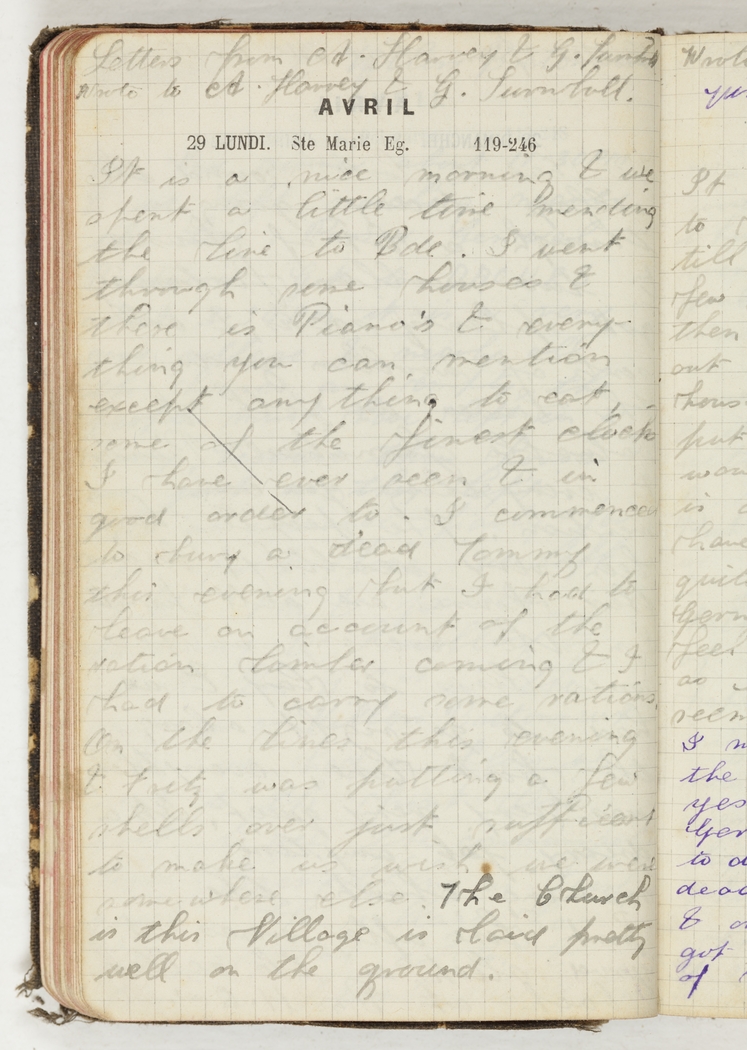 Letters from A. Harvey & G.
Wrote to A. Harvey & G. Turnbull.
AVRIL
29 LUNDI. Ste Marie Eg. 119-246
It is a nice morning & we
spent a little time mending
the line to Bde. I went
through some houses &
there is Piano's & every-
thing you can mention
except anything to eat,
some of the finest clocks
I have ever seen & in
good order to. I commenced
to bury a dead Tommy
this evening but I had to
leave on account of the
ration limber coming & I
had to carry some rations.
On the lines this evening
& Fritz was putting a few
shells over just sufficient
to make us wish we were
somewhere else. The Church
is this Village is laid pretty
well on the ground.
Wrote
It
to
till
few
then
out
hous
put
is
have
quit
Germ
feel
as
seem
I
the
yes
Ger
to d
dead
&
got
of